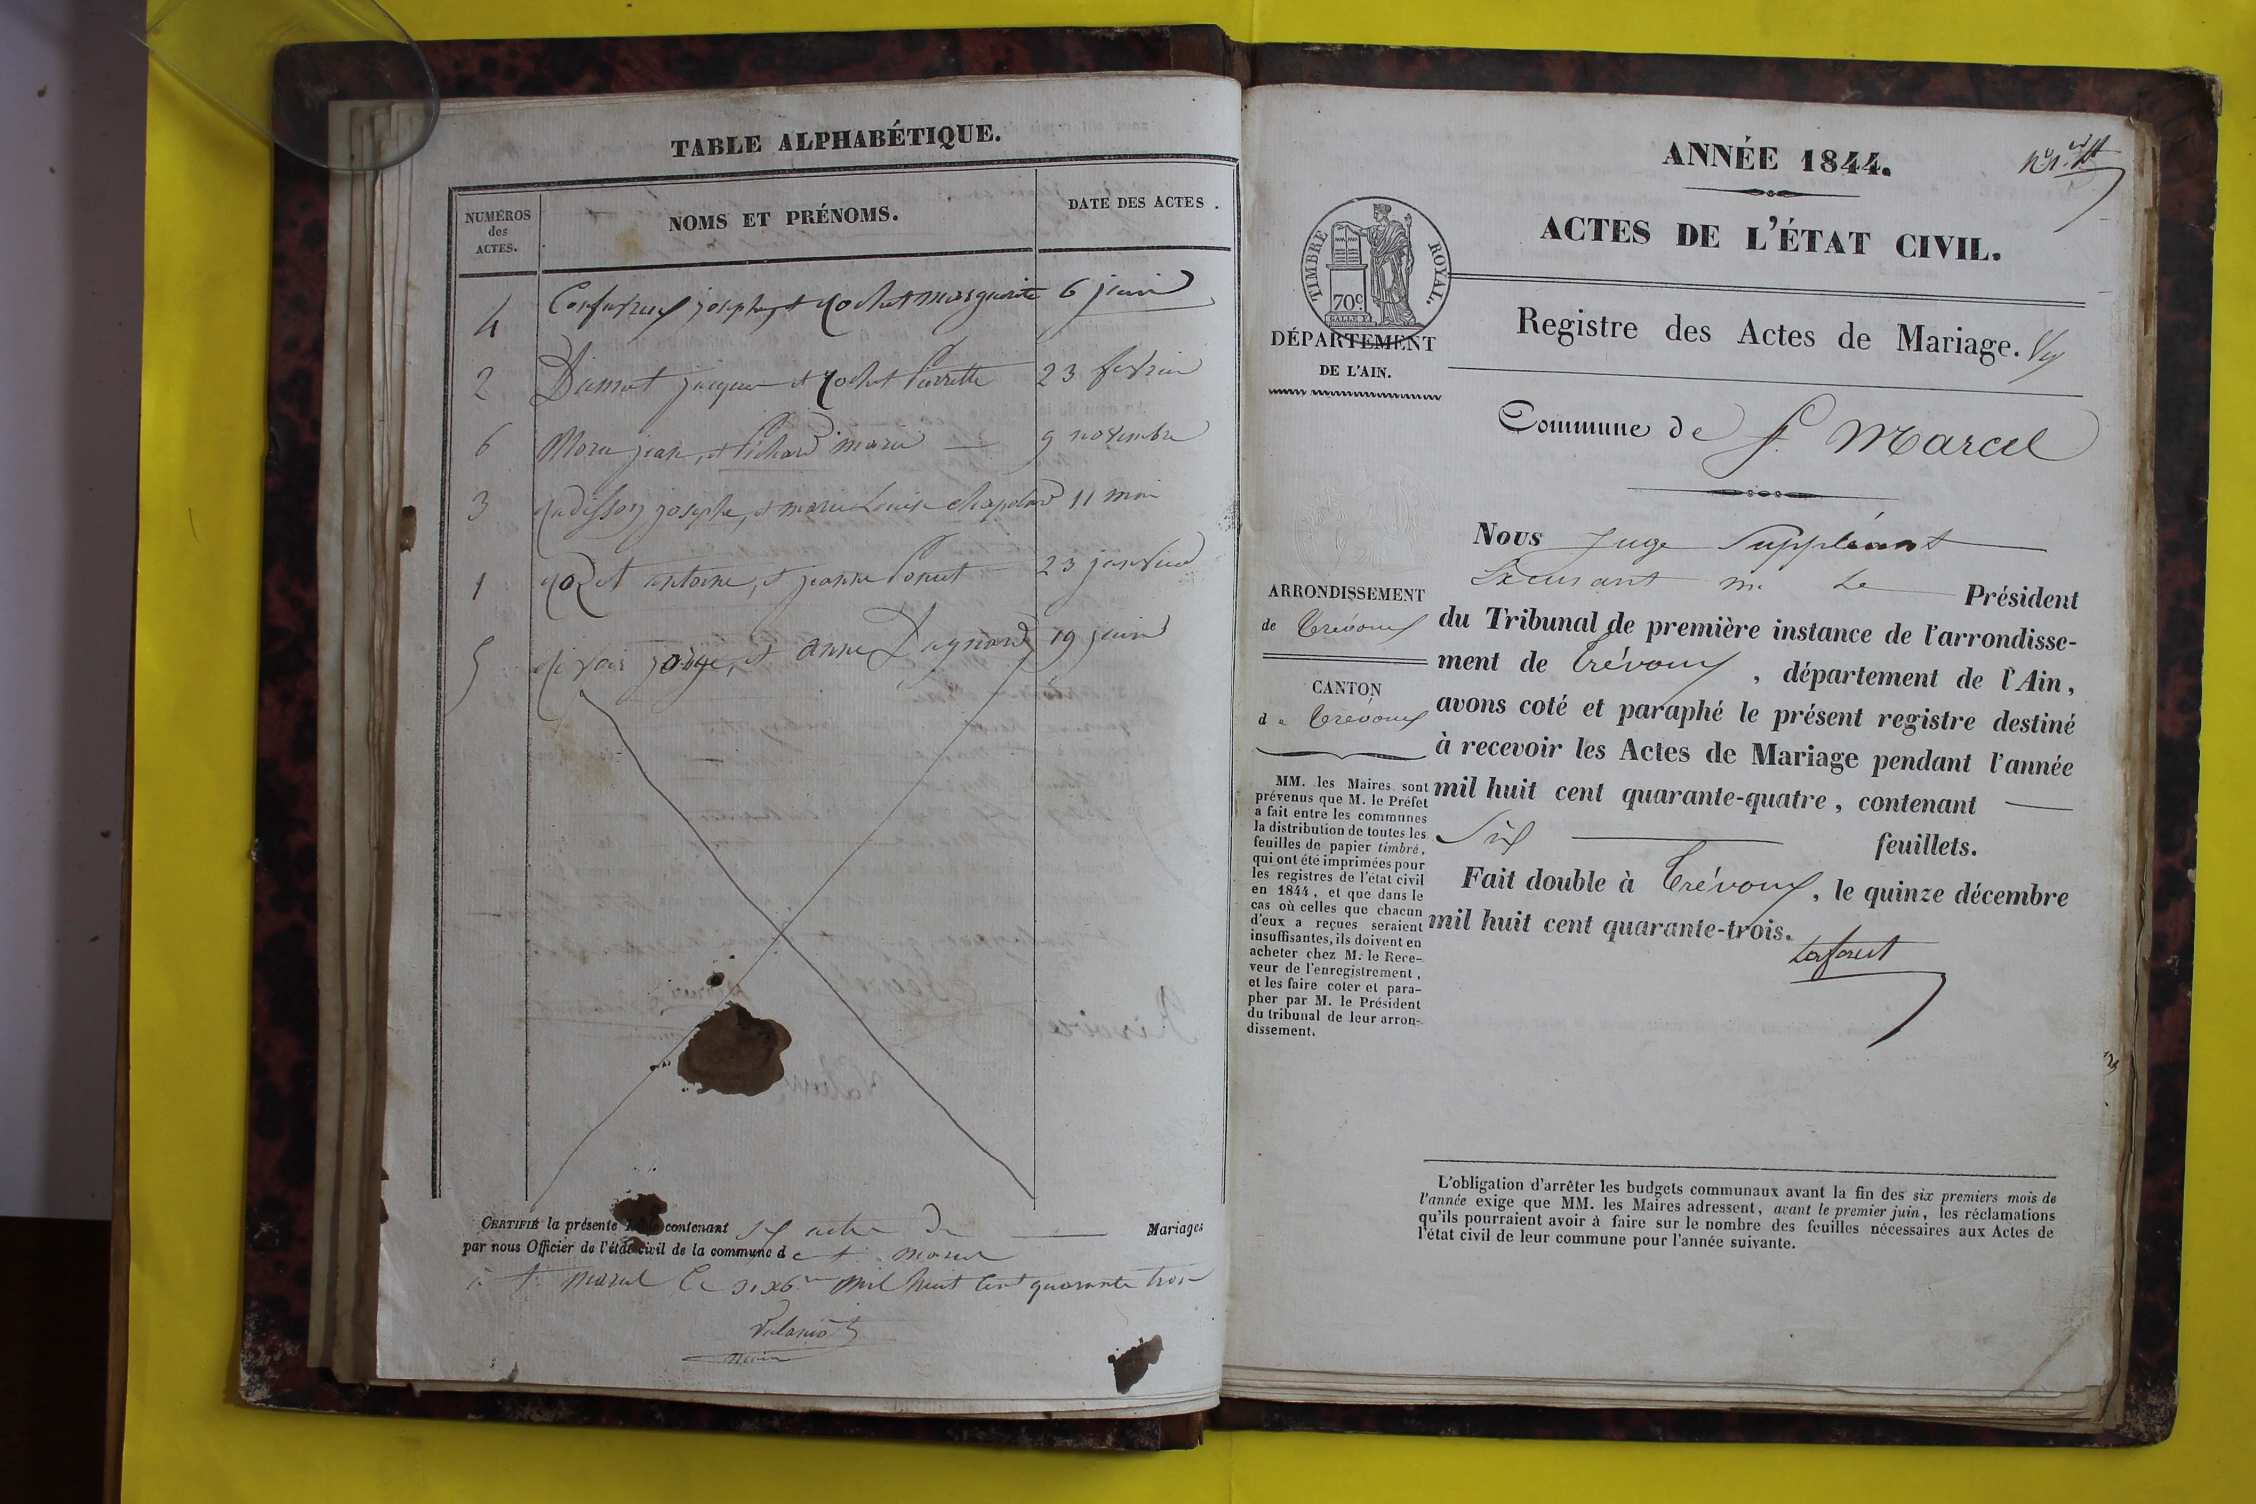 TABLE ALPHABÉTIQUE.
NUMÉROS des ACTES.
NOMS ET PRÉNOMS.
DATE DES ACTES.
4 joseph, et Rochet marguerite 6 juin
2 Dumont jacques et Rochet Pierrette 23 fevrier
6 Moru jean, et Pichard marie 9 novembre
3 joseph, et marie Louise chapolard 11 mai
1 Rozet antoine, et jeanne Ponset 23 janvier
5 et anne 19 juin
CERTIFIÉ la présente Table contenant six actes de Mariages
par nous Officier de l'état civil de la commune de St. marcel
à St. marcel le mil huit cent quarante trois
maire
ANNÉE 1844.
ACTES DE L'ÉTAT CIVIL.
TIMBRE ROYAL.
70c
DÉPARTEMENT
DE L'AIN.
Registre des Actes de Mariage.
Commune de St. Marcel
Nous Juge Suppléant
Excusant m. Le Président
du Tribunal de première instance de l'arrondisse-
ment de Trévoux, département de l'Ain,
avons coté et paraphé le présent registre destiné
à recevoir les Actes de Mariage pendant l'année
mil huit cent quarante-quatre, contenant
Six feuillets.
Fait double à Trévoux, le quinze décembre
mil huit cent quarante-trois.
ARRONDISSEMENT
de Trévoux
CANTON
de Trévoux
MM. les Maires sont
prévenus que M. le Préfet
a fait entre les communes
la distribution de toutes les
feuilles de papier timbré,
qui ont été imprimées pour
les registres de l'état civil
en 1844, et que dans le
cas où celles que chacun
d'eux a reçues seraient
insuffisantes, ils doivent en
acheter chez M. le Rece-
veur de l'enregistrement,
et les faire coter et para-
pher par M. le Président
du tribunal de leur arron-
dissement.
L'obligation d'arrêter les budgets communaux avant la fin des six premiers mois de
l'année exige que MM. les Maires adressent, avant le premier juin, les réclamations
qu'ils pourraient avoir à faire sur le nombre des feuilles nécessaires aux Actes de
l'état civil de leur commune pour l'année suivante.